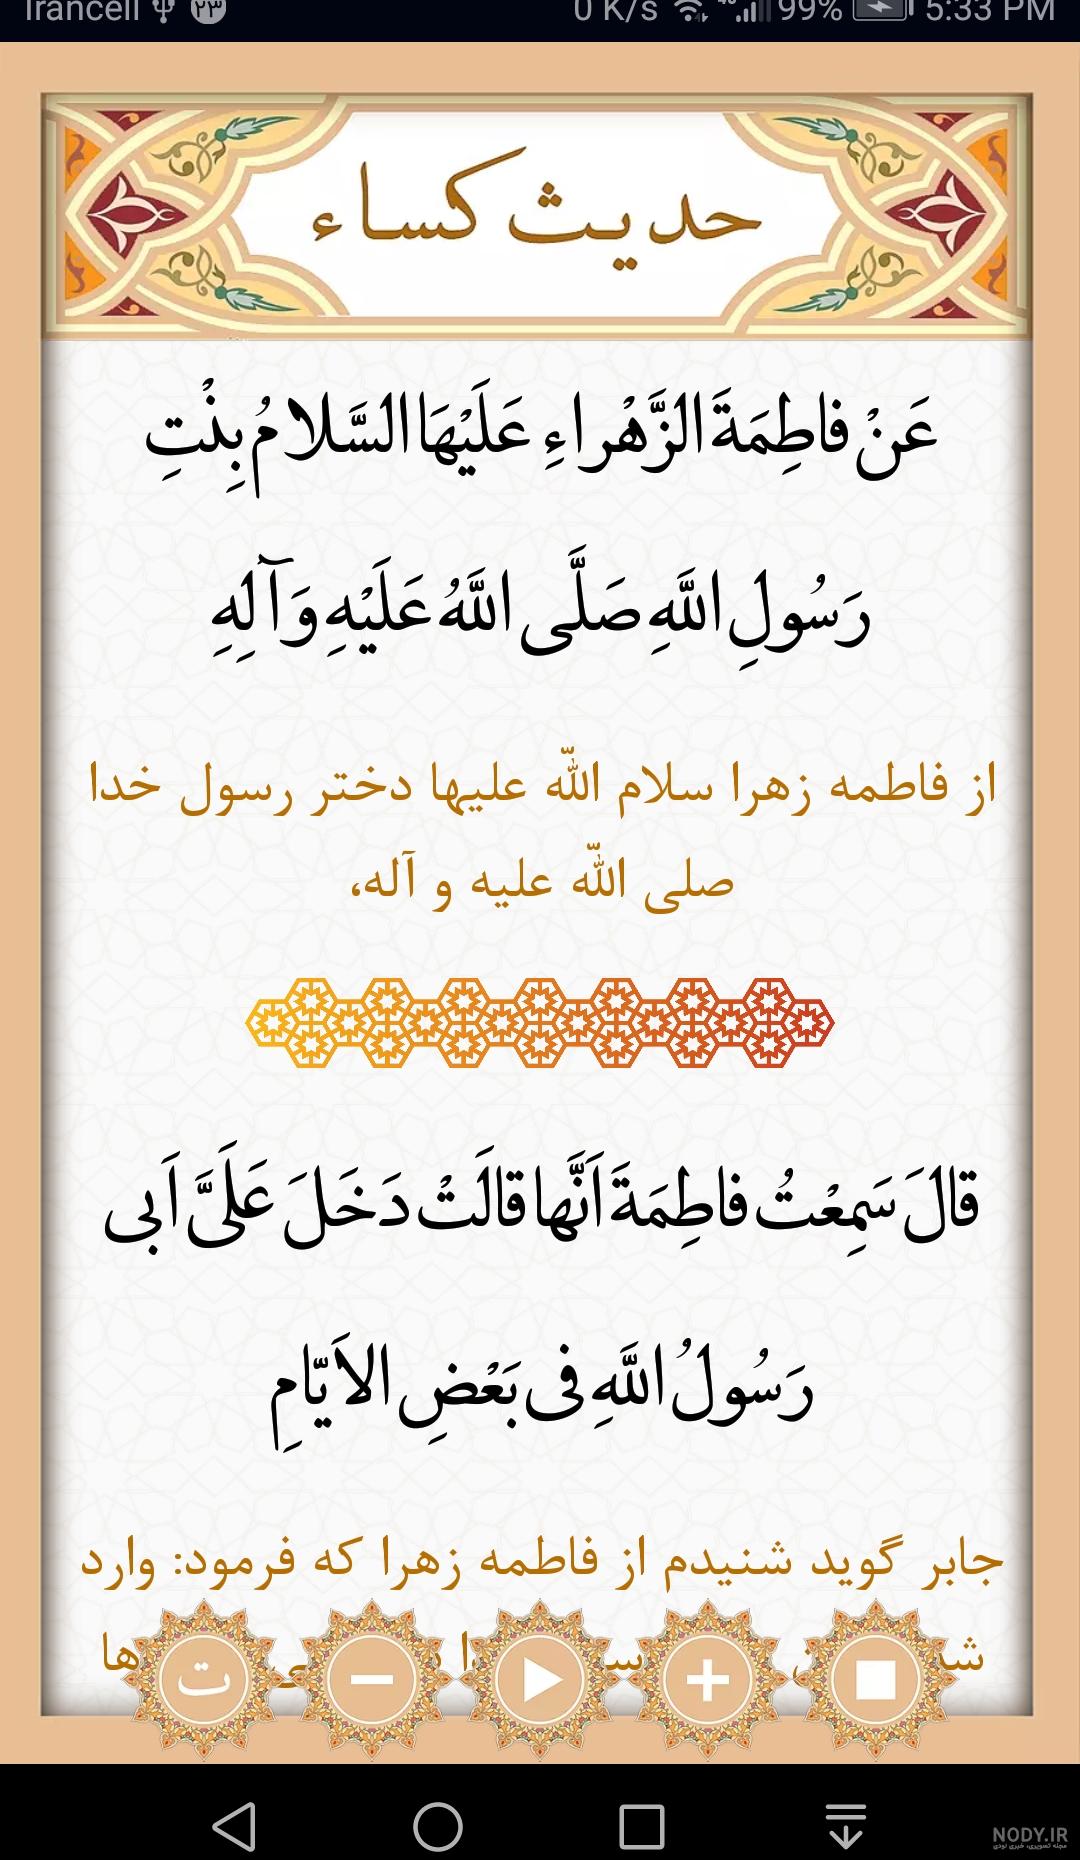 Irancell ۲۳ 0 K/s 4G 99% 5:33 PM
حدیث کساء
عَنْ فاطِمَةَ الزَّهْراءِ عَلَيْهَا السَّلامُ بِنْتِ
رَسُولِ اللَّهِ صَلَّى اللَّهُ عَلَيْهِ وَآلِهِ
از فاطمه زهرا سلام اللّه علیها دختر رسول خدا
صلی اللّه علیه و آله،
قالَ سَمِعْتُ فاطِمَةَ اَنَّها قالَتْ دَخَلَ عَلَىَّ اَبى
رَسُولُ اللَّهِ فى بَعْضِ الاَيّامِ
جابر گوید شنیدم از فاطمه زهرا که فرمود: وارد
ت
NODY.IR
مجله تصویری، خبری نودی